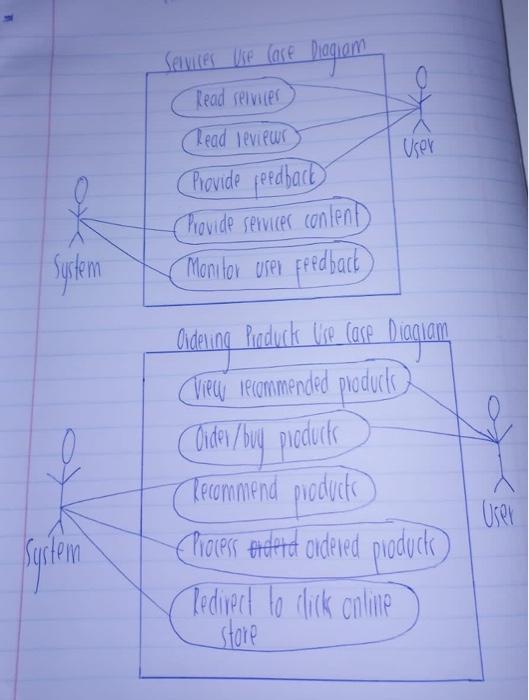 Services Use Case Diagram
Read services
Read reviews
User
Provide feedback
Provide services content
System
Monitor user feedback
Ordering Products Use Case Diagram
View recommended products
Order/buy products
Recommend products
User
System
Process orderd ordered products
Redirect to click online
store